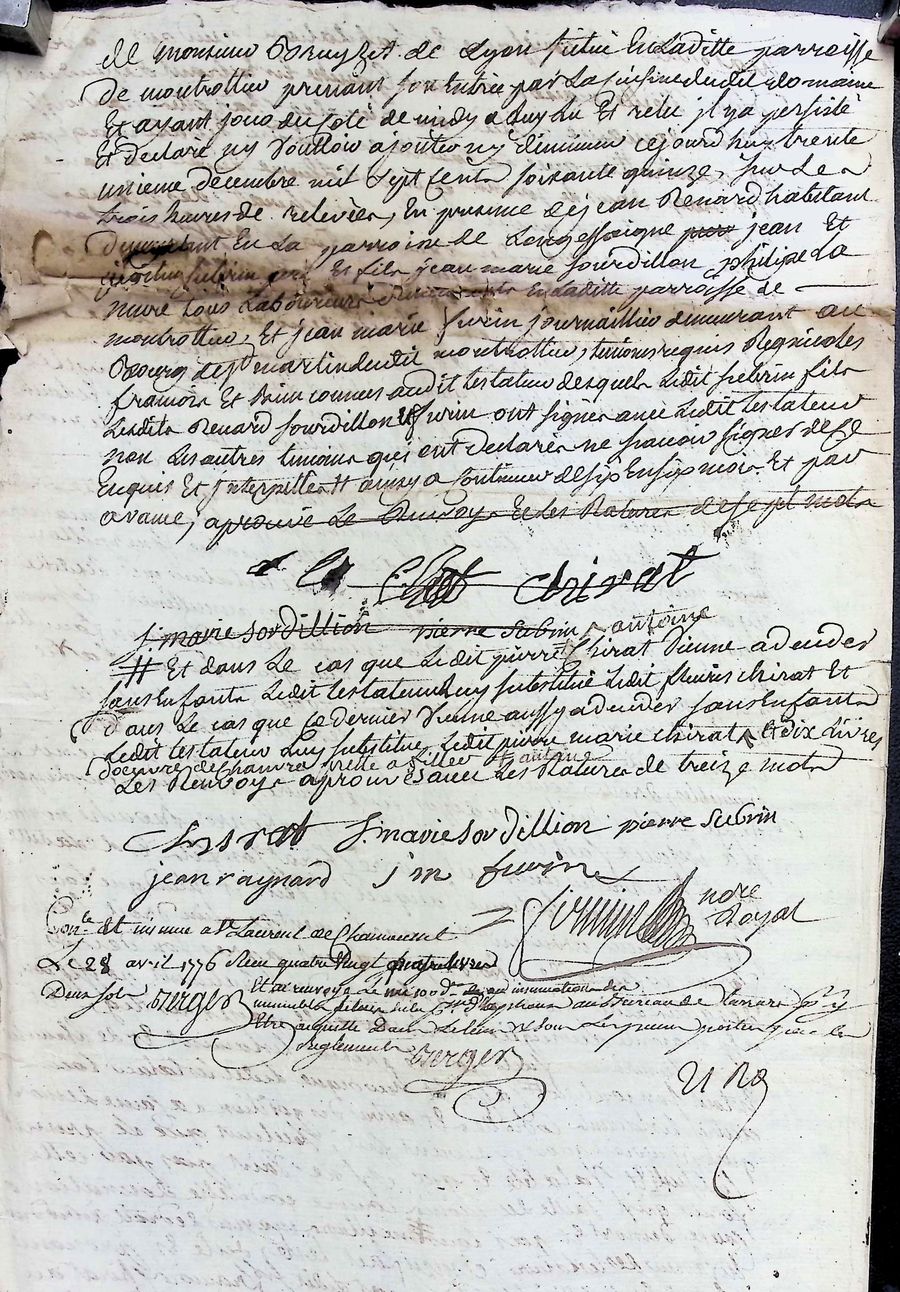 de monsieur Bruyzet de Lyon situé En Laditte parroisse
de montrottier prenant son Entrée par La cuisine dudit domaine
Et ayant joug du coté de midy a Luy Lu Et relu il y a persisté
Et declaré n'y Vouloir ajouter ny diminuer cejourd'huy trente
unieme decembre mil sept cents soixante quinze, sur Les
trois heures de relevées, En presence de jean Renard habitant
En La parroisse de Longessaigne jean Et
subrin pere Et fils jean marie sourdillon philipe La
mure tous Laboureurs En Laditte parroisse de
montrottier, Et jean marie furin journaillier demeurant au
Bourg de st martin dudit montrottier, temoins requis Regnicoles
francois Et bien connus audit testateur desquels Ledit subrin fils
Lesdits Renard sourdillon Et furin ont signés avec Ledit testateur
non Les autres temoins qui ont declarés ne scavoir signer de ce
Enquis Et Interpellés # ainsy a continuer de six En six mois Et par
avance, aprouvé Le Renvoy Et Les Ratures de sept mots
Chirat
j. marie sordillion pierre subrin antoine
# Et dans Le cas que Ledit pierre Chirat Vienne a deceder
sans Enfants Ledit testateur Luy substitue Ledit fleuris chirat Et
dans Le cas que ce dernier Vienne aussy a deceder sans Enfants
Ledit testateur Luy substitue Ledit pierre marie chirat Et dix Livres
d'oeuvre de chanvre prette a filler antoine
Les Renvoys aprouvés avec Les Ratures de treize mots
Chirat j. marie sordillion pierre subrin
jean raynard j m furin
nore
Royal
Conlé Et insinué a St Laurent de Chamousset
Le 28 avril 1776 Reçu quatre Vingt quatre livres
Deux sols Berger Et au renvoy a insinuation des
immeubles au Bureau de tarare
Etre acquitté dans Le
Reglements Berger